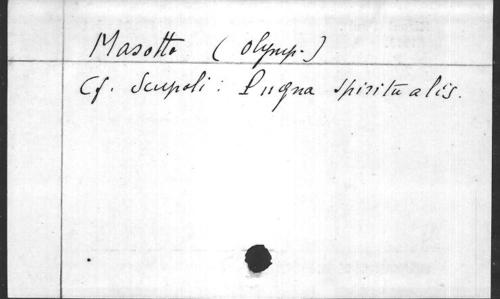 Masotto (Olymp.)
Cf. Scupoli: Pugna spiritualis.